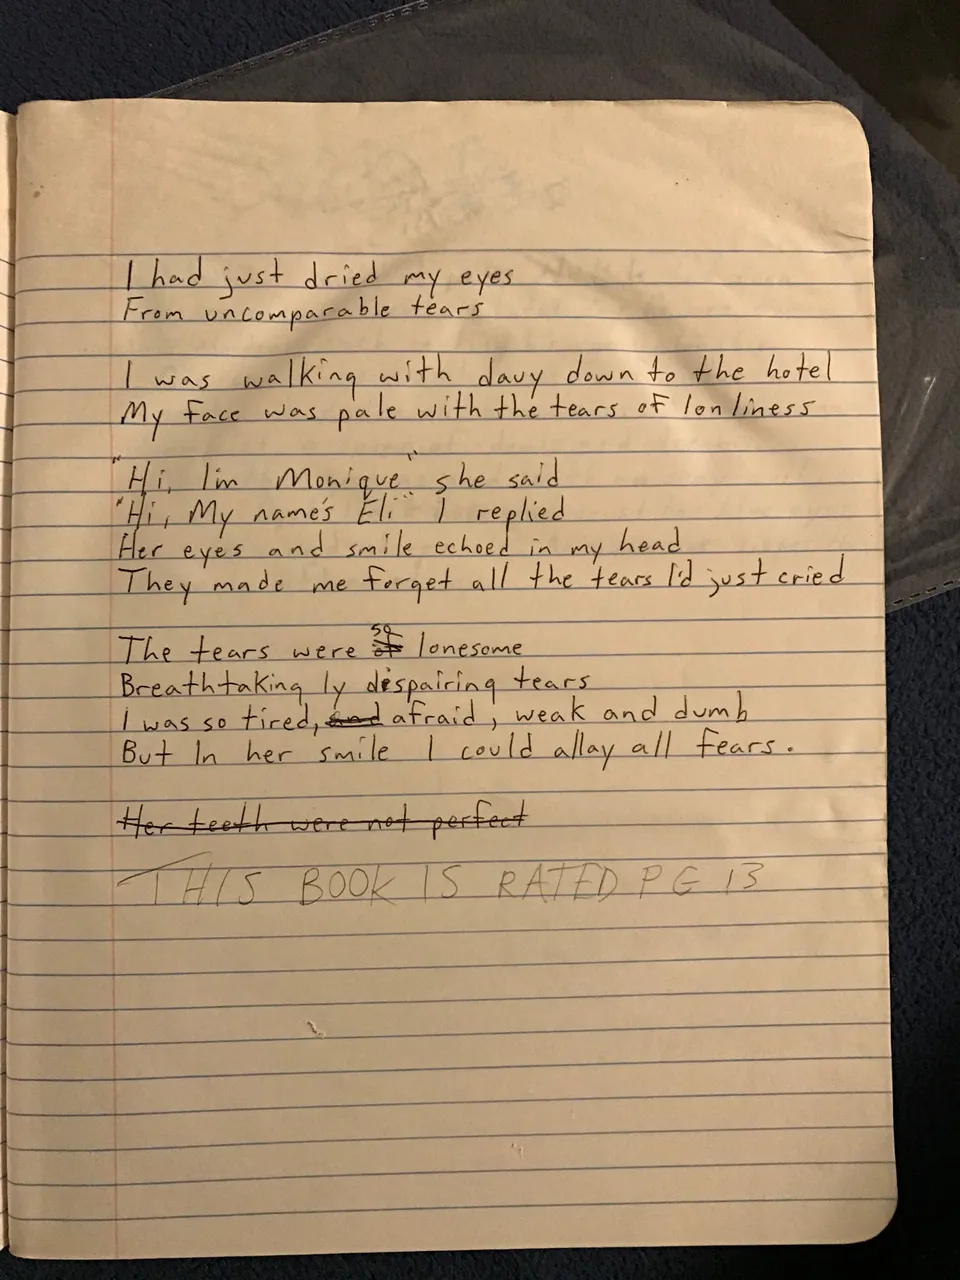 I had just dried my eyes
From uncomparable tears
I was walking with davy down to the hotel
My face was pale with the tears of lonliness
"Hi, I'm Monique" she said
"Hi, My name's Eli" I replied
Her eyes and smile echoed in my head
They made me forget all the tears I'd just cried
The tears were so lonesome
Breathtaking ly despairing tears
I was so tired, and afraid, weak and dumb
But In her smile I could allay all fears.
Her teeth were not perfect
THIS BOOK IS RATED PG 13